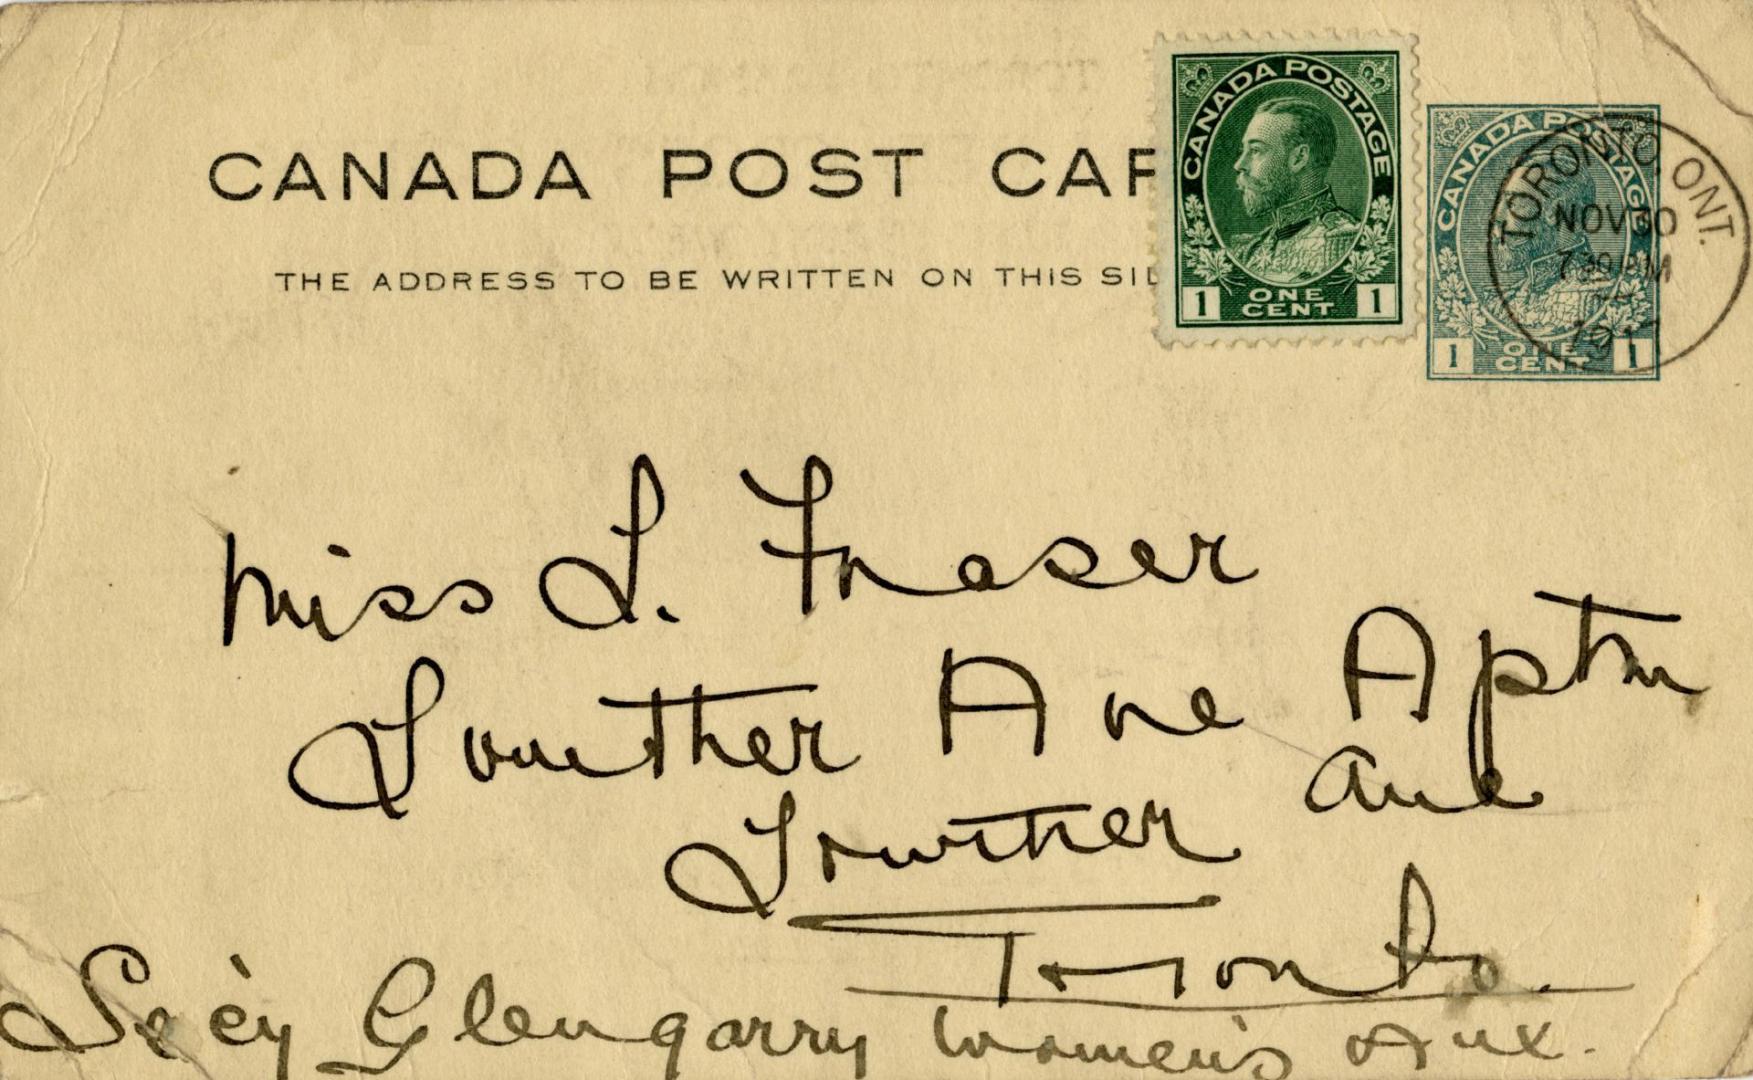 CANADA POST CAR
THE ADDRESS TO BE WRITTEN ON THIS SID
CANADA POSTAGE
1 ONE CENT 1
CANADA POSTAGE
1 ONE CENT 1
TORONTO, ONT.
NOV 30
7 30 PM
1917
Miss L. Fraser
Lowther Ave Aptm
Lowther Ave
Toronto.
Sec'y Glengarry Women's Aux.